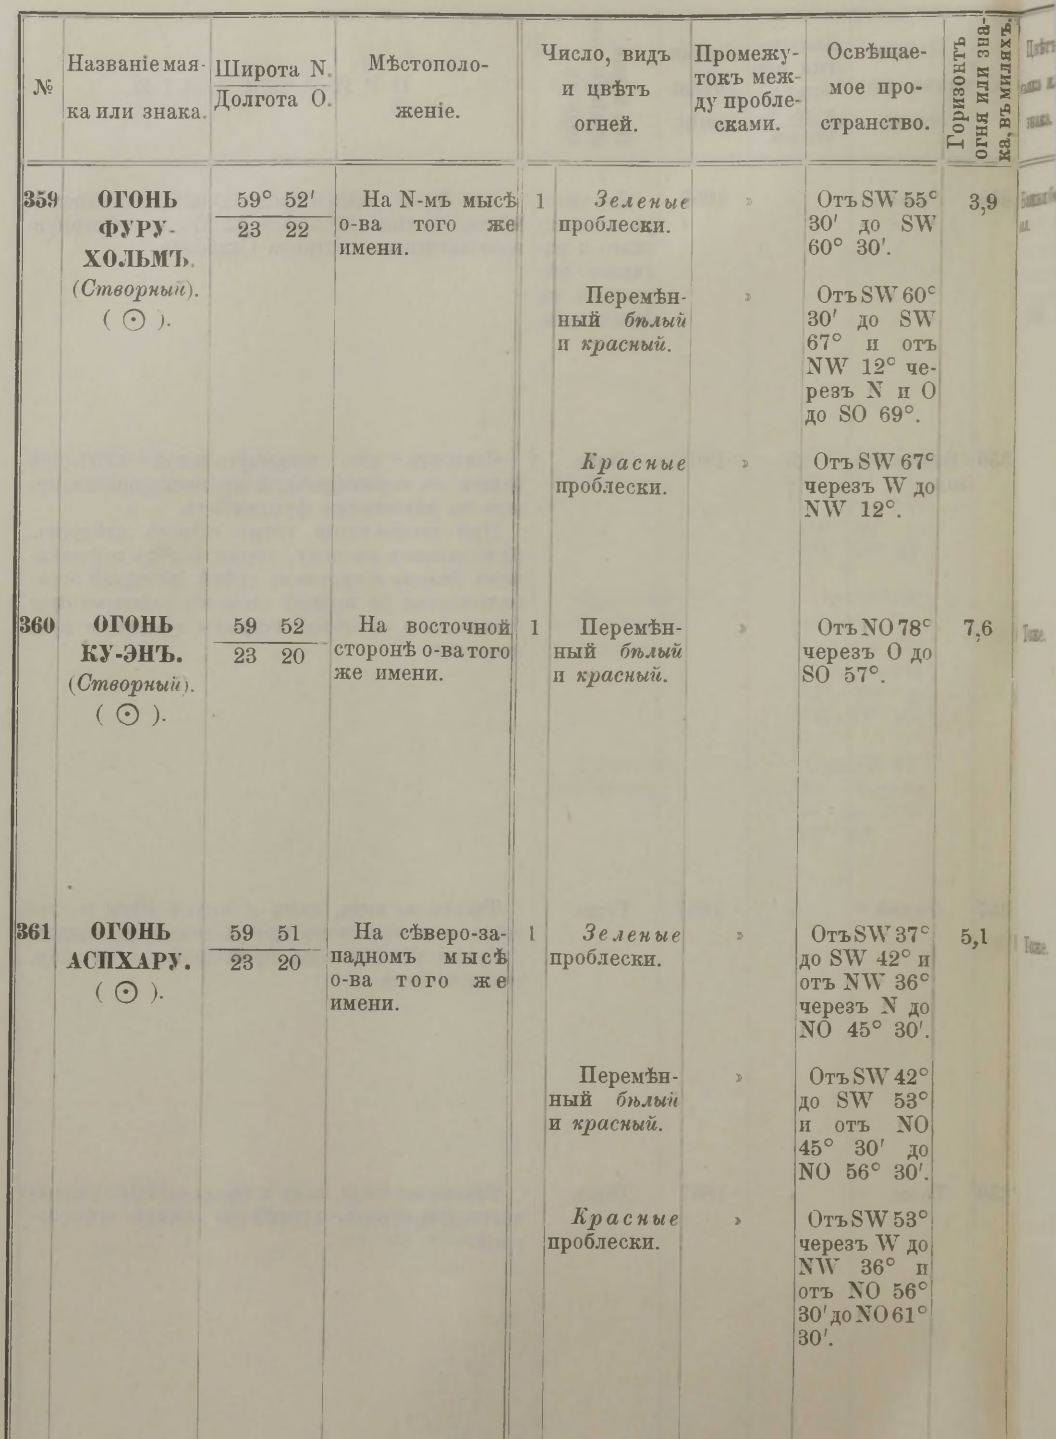 №
Названіе мая-
ка или знака.
Широта N.
Долгота O.
Мѣстополо-
женіе.
Число, видъ
и цвѣтъ
огней.
Промежу-
токъ меж-
ду пробле-
сками.
Освѣщае-
мое про-
странство.
Горизонтъ
огня или зна-
ка, въ миляхъ.
359
ОГОНЬ
ФУРУ-
ХОЛЬМЪ.
(Створный).
( ⊙ ).
59° 52′
23 22
На N-мъ мысѣ
о-ва того же
имени.
1
Зеленые
проблески.
»
Отъ SW 55°
30′ до SW
60° 30′.
3,9
Перемѣн-
ный бѣлый
и красный.
»
Отъ SW 60°
30′ до SW
67° и отъ
NW 12° че-
резъ N и O
до SO 69°.
Красные
проблески.
»
Отъ SW 67°
черезъ W до
NW 12°.
360
ОГОНЬ
КУ-ЭНЪ.
(Створный).
( ⊙ ).
59 52
23 20
На восточной
сторонѣ о-ва того
же имени.
1
Перемѣн-
ный бѣлый
и красный.
»
Отъ NO 78°
черезъ O до
SO 57°.
7,6
Тоже.
361
ОГОНЬ
АСПХАРУ.
( ⊙ ).
59 51
23 20
На сѣверо-за-
падномъ мысѣ
о-ва того же
имени.
1
Зеленые
проблески.
»
Отъ SW 37°
до SW 42° и
отъ NW 36°
черезъ N до
NO 45° 30′.
5,1
Тоже.
Перемѣн-
ный бѣлый
и красный.
»
Отъ SW 42°
до SW 53°
и отъ NO
45° 30′ до
NO 56° 30′.
Красные
проблески.
»
Отъ SW 53°
черезъ W до
NW 36° и
отъ NO 56°
30′ до NO 61°
30′.